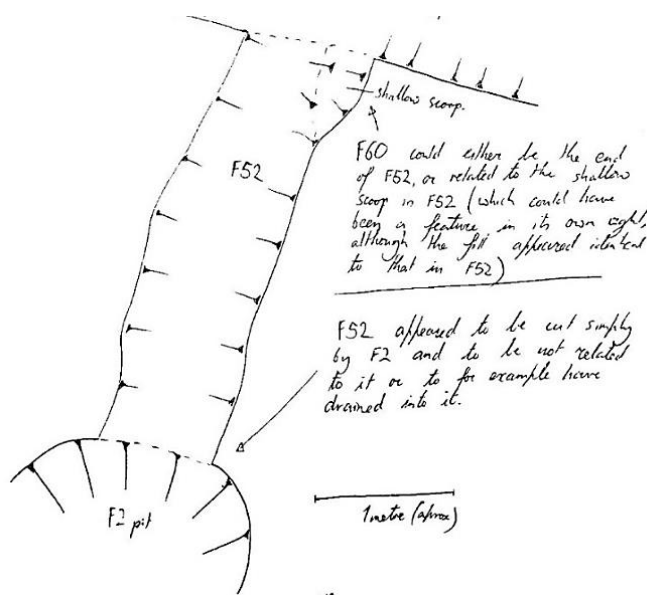 shallow scoop.
F52
F60 could either be the end
of F52, or related to the shallow
scoop in F52 (which could have
been a feature in its own right,
although the fill appeared identical
to that in F52)
F52 appeared to be cut simply
by F2 and to be not related
to it or to for example have
drained into it.
F2 pit
1 metre (aprox)